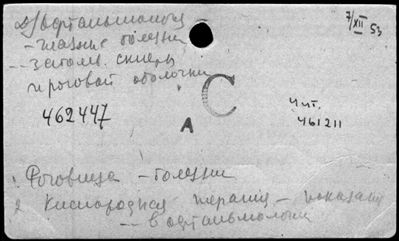 Офтальмология
7/XII 53
- глазные болезни
- забол. склеры
и роговой оболочки
С
462447
А
чит.
461211
1. Роговица - болезни
2 Кислородная терапия - показания
- в офтальмологии